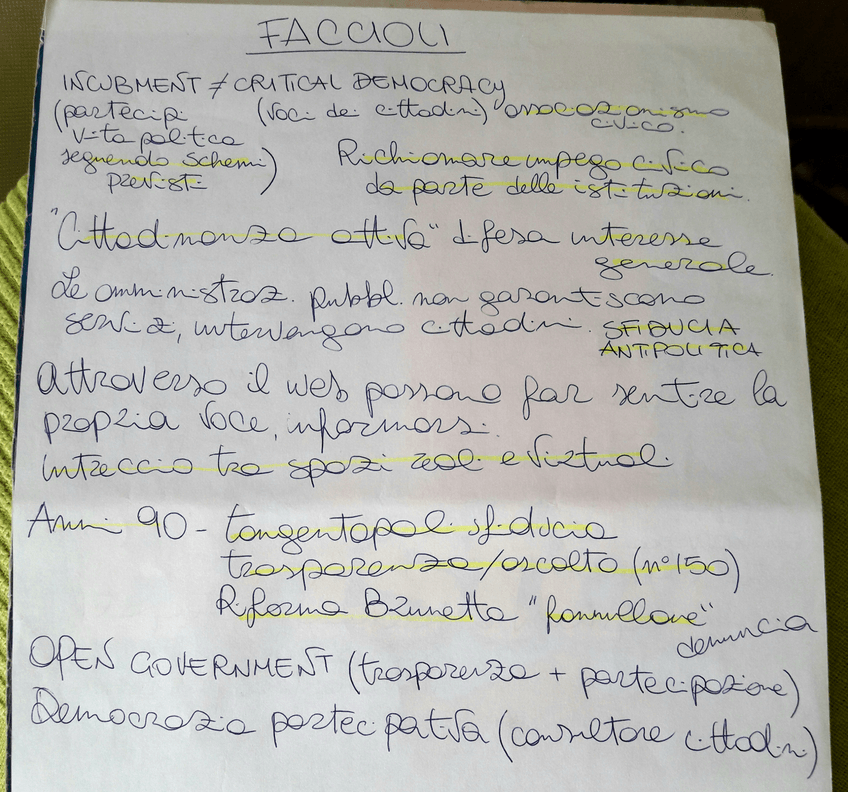 FACCIOLI
INCUBMENT ≠ CRITICAL DEMOCRACY
(partecip. (voci dei cittadini) associazionismo
vita politica civico.
seguendo schemi
previsti)
Richiamare impegno civico
da parte delle istituzioni.
"Cittadinanza attiva" difesa interesse
generale.
Le amministraz. pubbl. non garantiscono
serviz, intervengono cittadini. SFIDUCIA
ANTIPOLITICA
Attraverso il web possono far sentire la
propria voce, informarsi.
Intreccio tra spazi reali e virtuali.
Anni 90 - tangentopoli sfiducia
trasparenza/ascolto (n°150)
Riforma Brunetta "fannullone"
denuncia
OPEN GOVERNMENT (trasparenza + partecipazione)
Democrazia partecipativa (consultare cittadini)